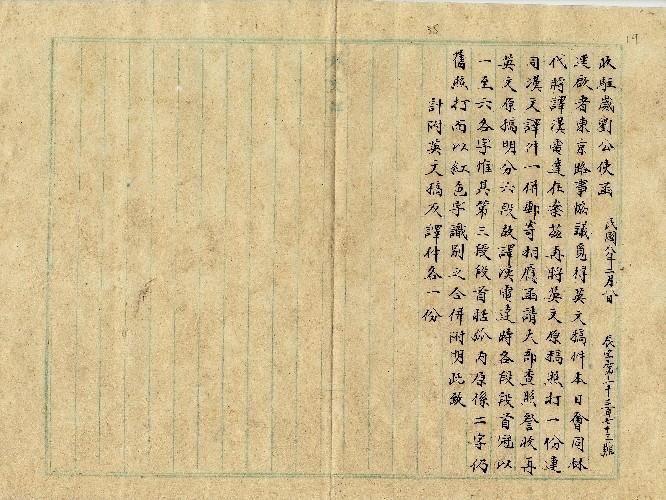 19
38
收駐崴劉公使函 民國八年二月八日
逕啟者東京路事協議覓得英文稿件本日會同林
代將譯漢電達在案茲再將英文原稿照打一份連
同漢文譯件一併郵寄相應函請大部查照詧收再
英文原稿明分六段故譯漢電達時各段段首冠以
一至六各字惟其第三段段首括弧內原係二字仍
舊照打而以紅色字識別之合併附明此致
計附英文稿及譯件各一份